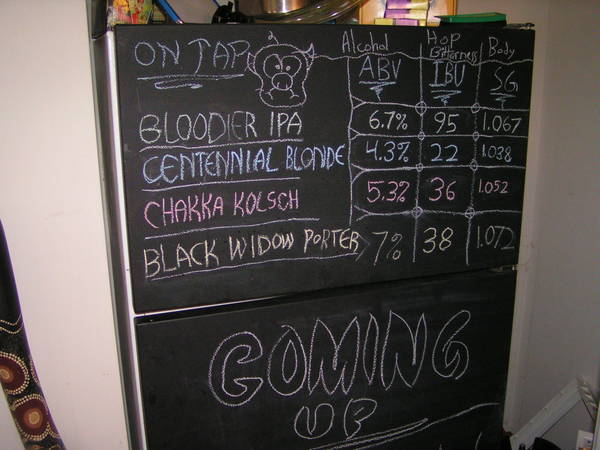 ON TAP Alcohol Hop Bitterness Body
ABV IBU SG
BLOODIER IPA 6.7% 95 1.067
CENTENNIAL BLONDE 4.3% 22 1.038
CHAKKA KOLSCH 5.3% 36 1.052
BLACK WIDOW PORTER 7% 38 1.072
COMING
UP